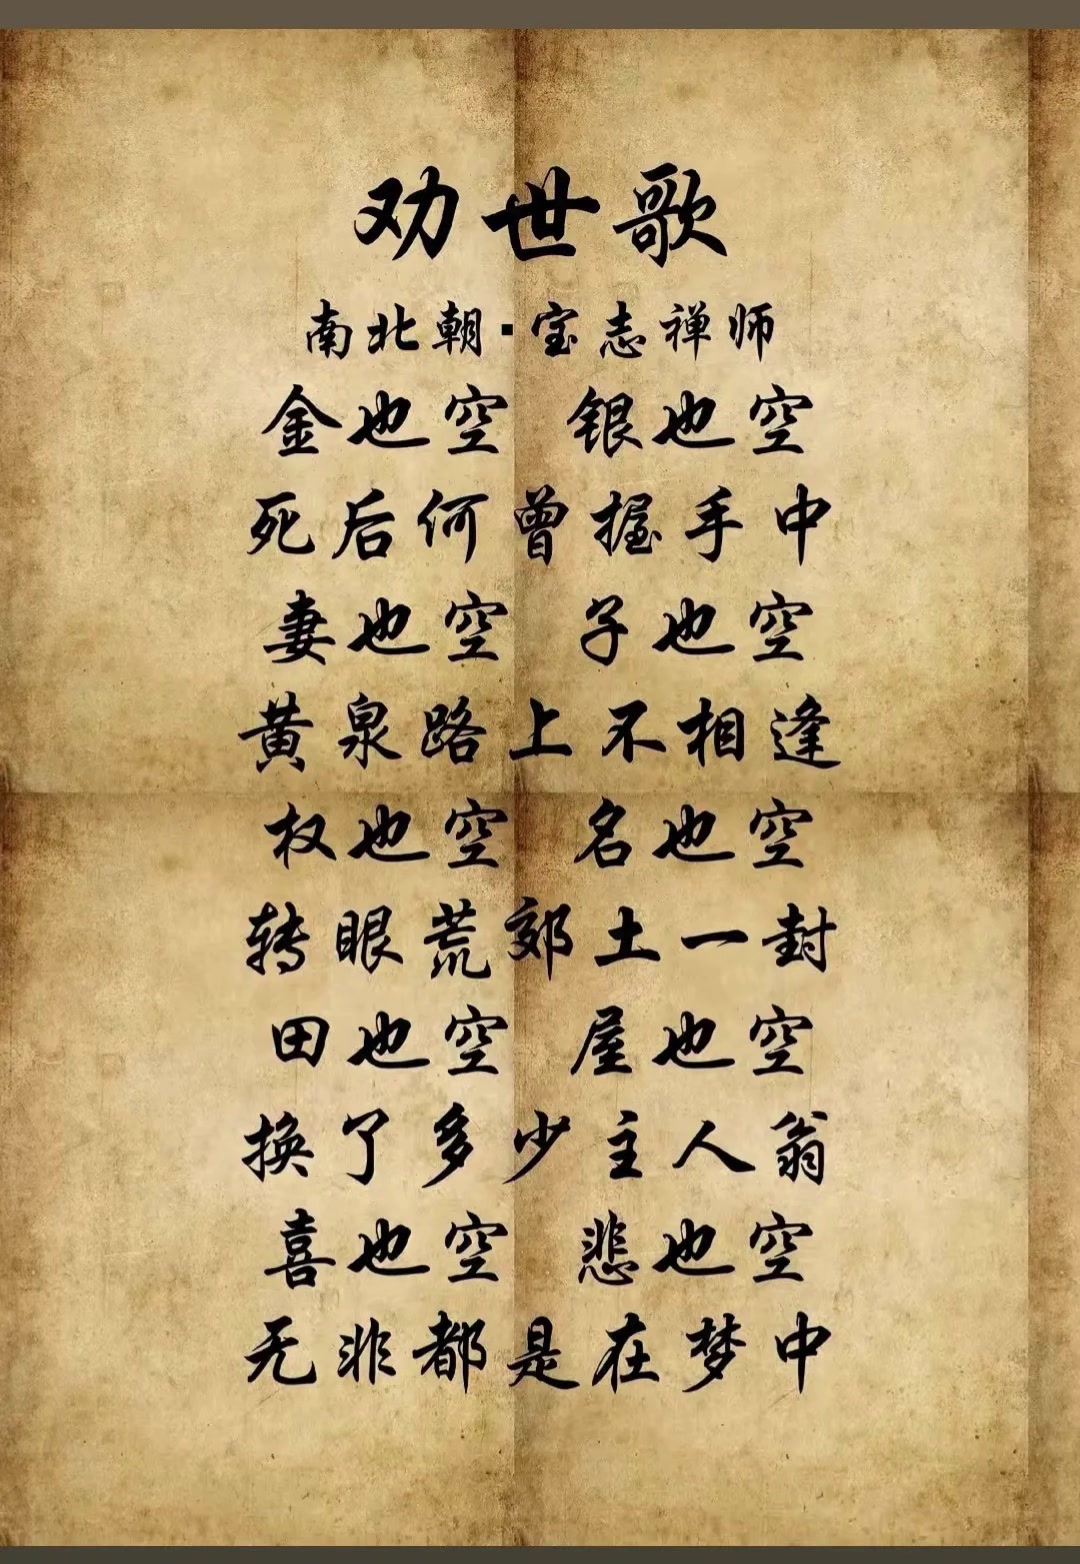 劝世歌
南北朝·宝志禅师
金也空 银也空
死后何曾握手中
妻也空 子也空
黄泉路上不相逢
权也空 名也空
转眼荒郊土一封
田也空 屋也空
换了多少主人翁
喜也空 悲也空
无非都是在梦中